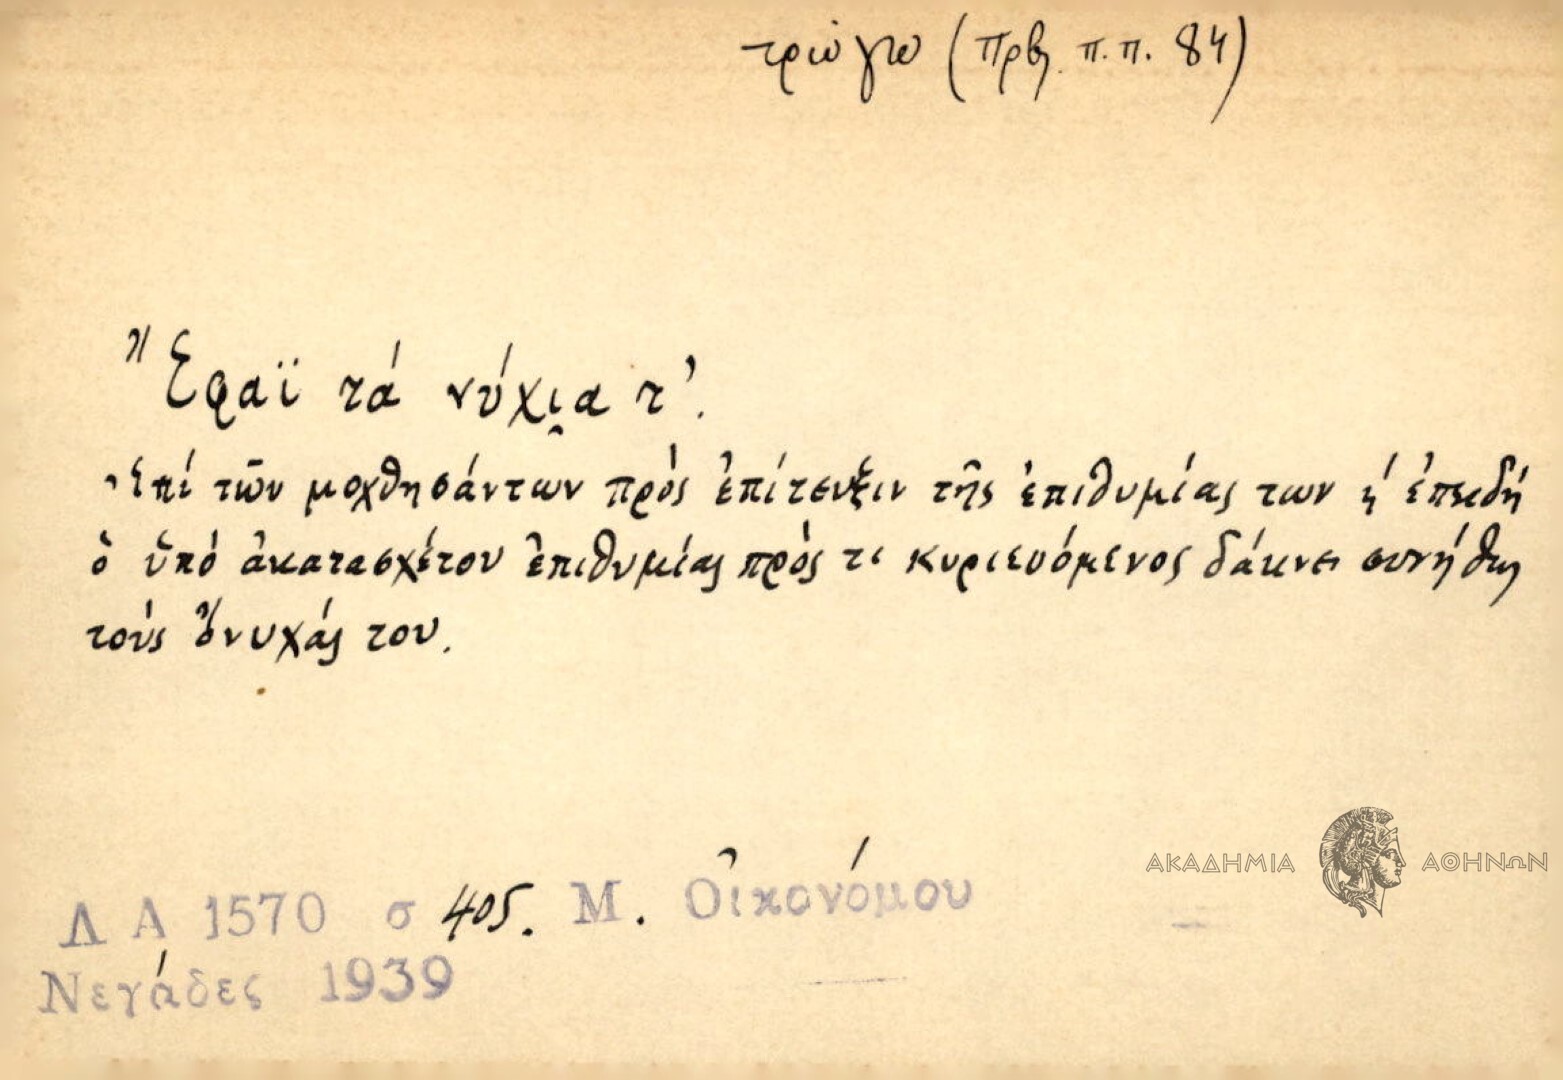 τρώγω (Πρβ. π.π. 84)
Ἔφαϊ τά νύχι̯α τ'.
Ἐπί τῶν μοχθησάντων πρός ἐπίτευξιν τῆς ἐπιθυμίας των ἤ ἐπειδή
ὁ ὑπό ἀκατασχέτου ἐπιθυμίας πρός τι κυριευόμενος δάκνει συνήθως
τούς ὄνυχάς του.
Λ Α 1570 σ 405. Μ. Οἰκονόμου
Νεγάδες 1939
ΑΚΑΔΗΜΙΑ ΑΘΗΝΩΝ